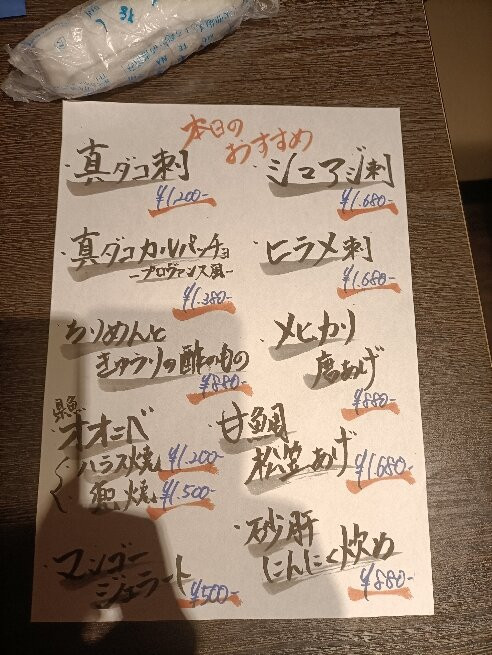 本日の
おすすめ
・真ダコ刺
¥1.200-
・真ダコカルパーチョ
ープロヴァンス風ー
¥1.380-
・ちりめんと
きゅうりの酢のもの
¥880-
・オオニベ
ハラス焼 ¥1.200-
・マンゴー
ジェラート ¥500-
・シマアジ刺
¥1.680-
・ヒラメ刺
¥1.680-
・メヒカリ
唐あげ
¥880-
・甘鯛
松笠あげ ¥1.680-
・砂肝
にんにく炒め
¥880-